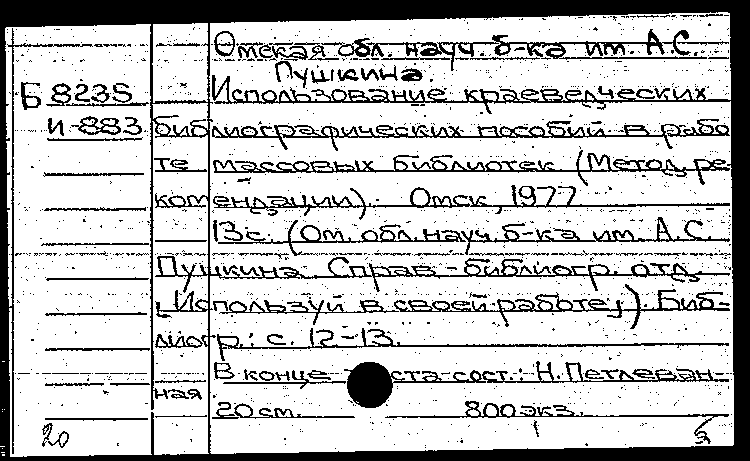 Омская обл. науч. б-ка им. А.С.
Пушкина.
Б 8235 Использование краеведческих
И-883 библиографических пособий в рабо
те массовых библиотек (Метод. ре-
комендации). Омск, 1977
13с. (Ом. обл. науч. б-ка им. А.С.
Пушкина. Справ-библиогр. отд.
"Используй в своей работе"). Биб-
лиогр.: с. 12-13.
В конце ста сост.: Н. Петлеван-
ная
20 см. 800 экз.
20